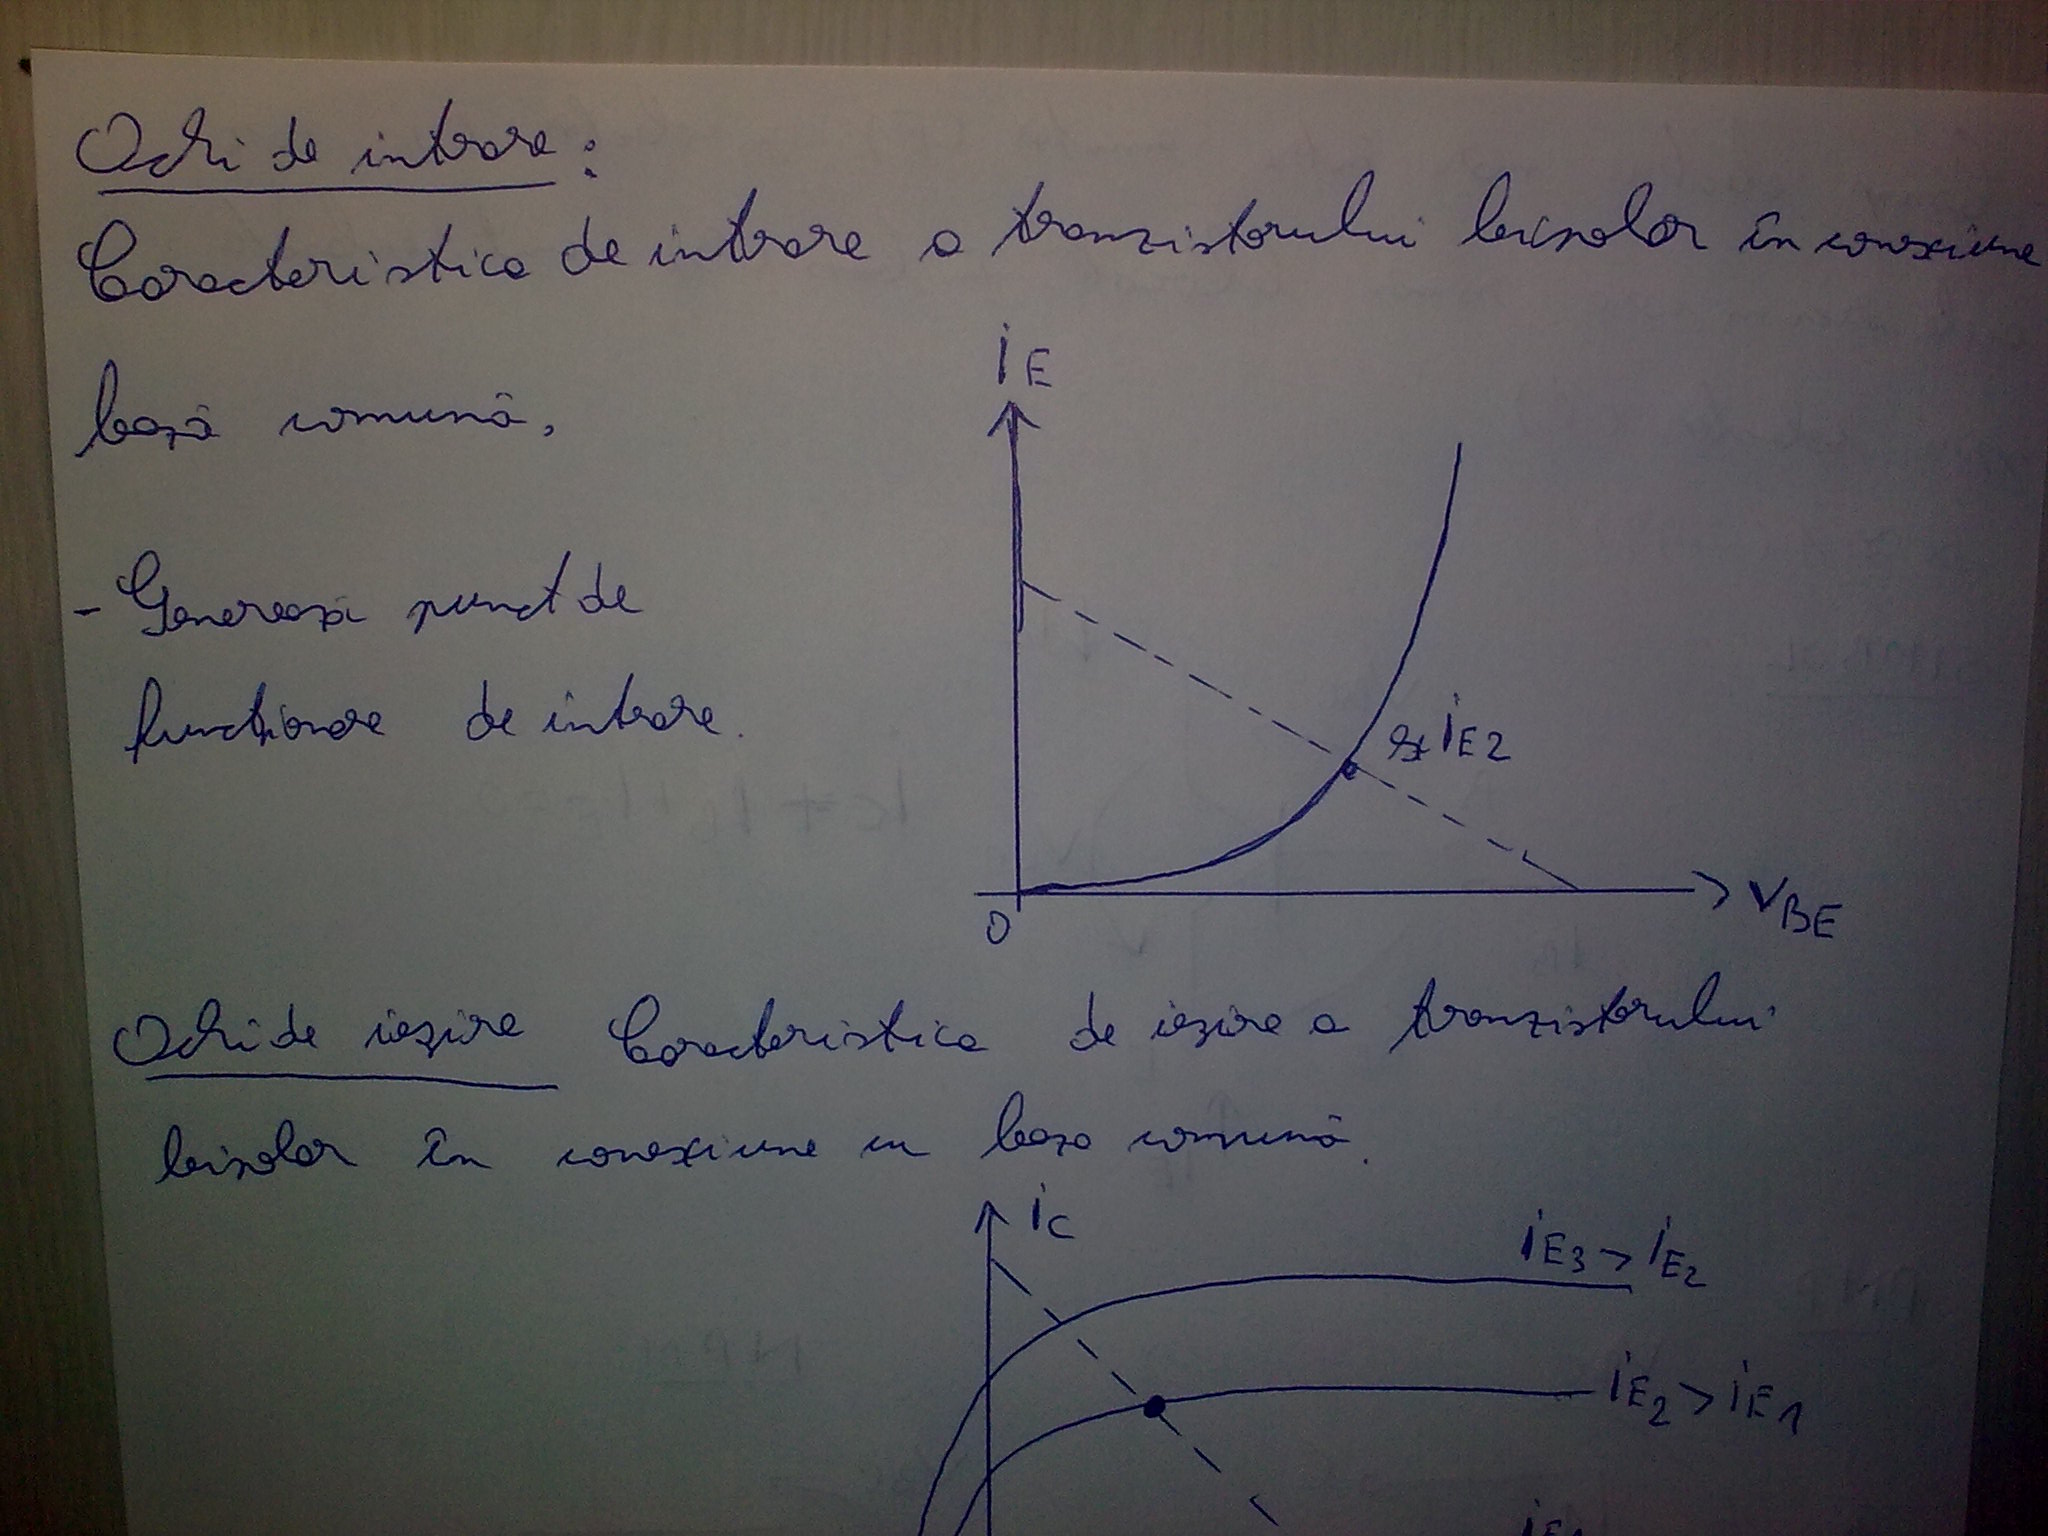 Ochi de intrare :
Caracteristica de intrare a tranzistorului bipolar în conexiune
bază comună.
iE
- Generează punct de
funcționare de intrare.
ex iE2
0
vBE
Ochi de ieșire Caracteristica de ieșire a tranzistorului
bipolar în conexiune cu baza comună.
iC
iE3 > iE2
iE2 > iE1
iE1